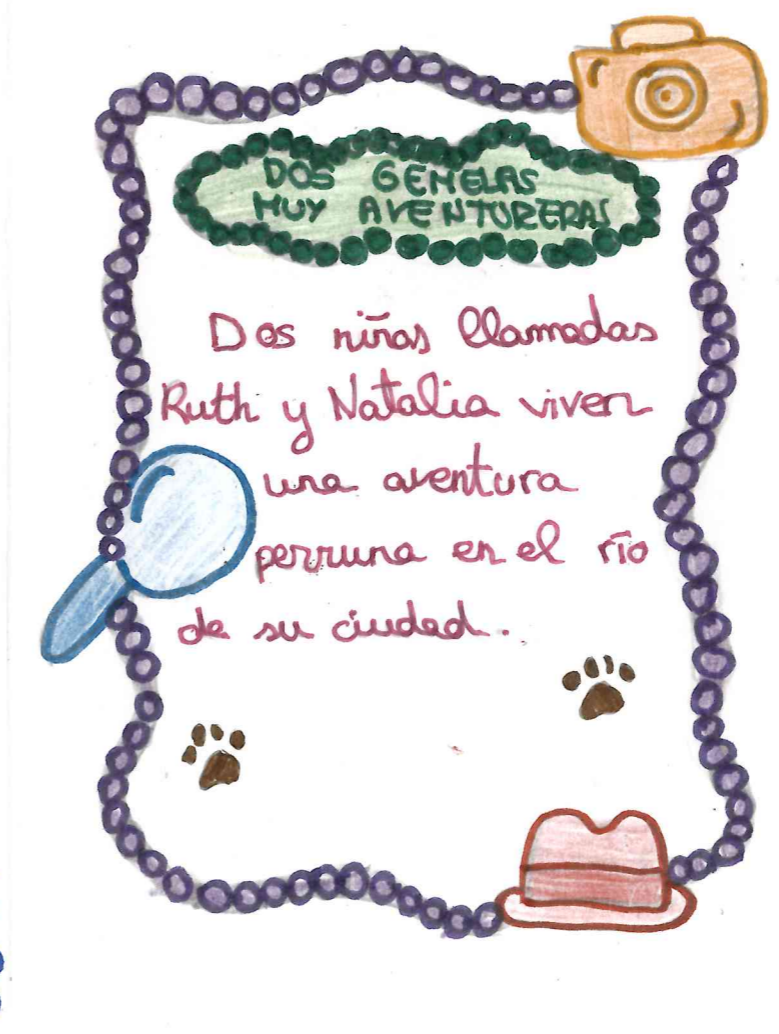 DOS GEMELAS
MUY AVENTURERAS
Dos niñas llamadas
Ruth y Natalia viven
una aventura
perruna en el río
de su ciudad.